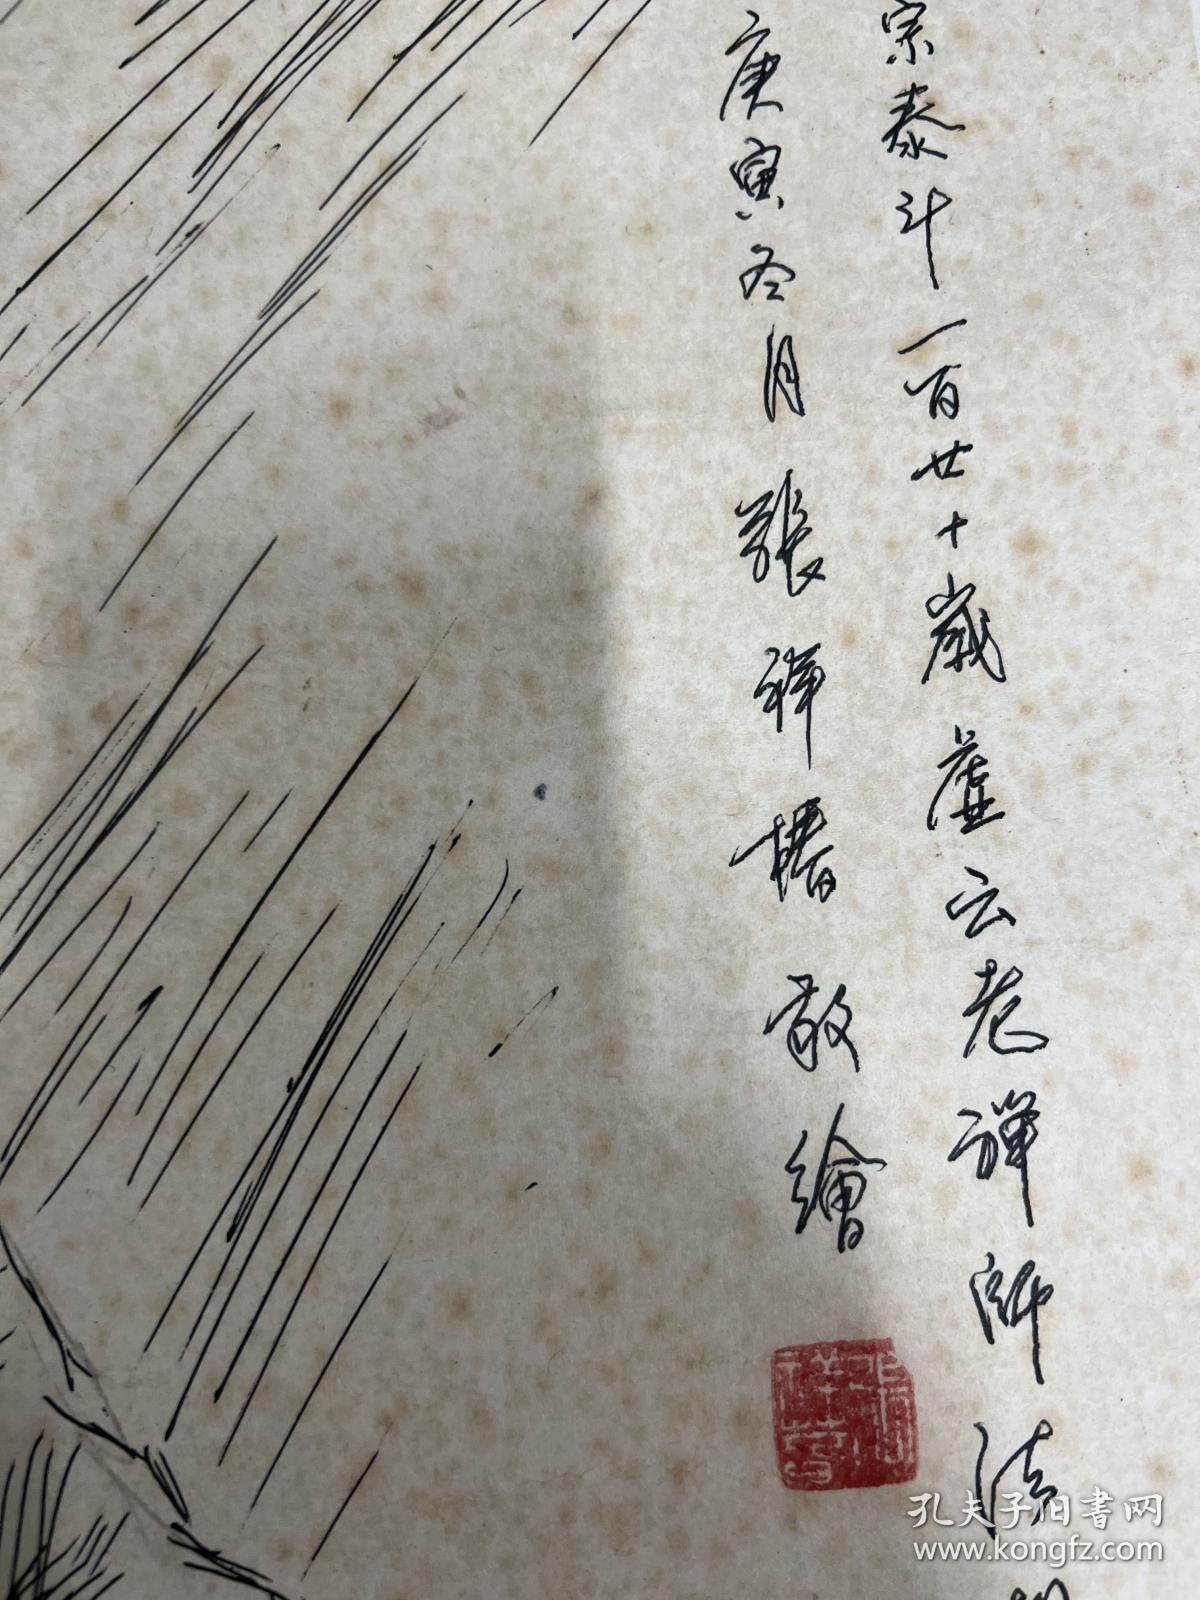 宗泰斗一百廿十歲虚云老禪師法
庚寅冬月張禅播敬繪
孔夫子旧书网
www.kongfz.com